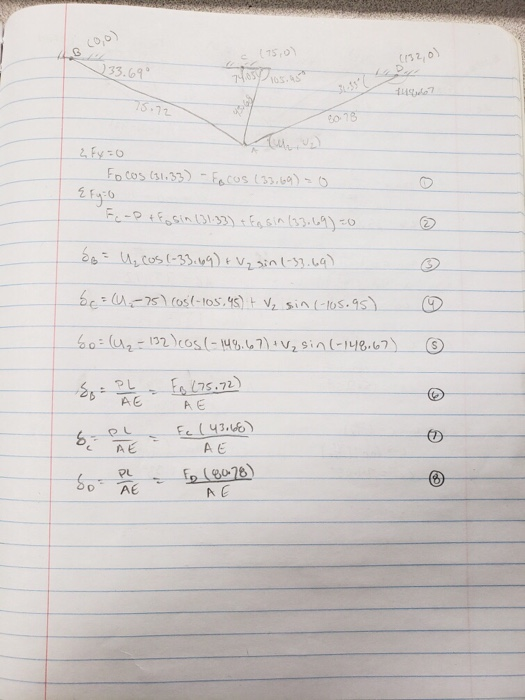 (0,0)
B
C (75,0)
(132,0)
D
33.69°
74.05° 105.95°
31.33°
148.67
75.72
43.68
80.78
A (u₂, v₂)
ΣFx=0
F_D cos(31.33) - F_B cos(33.69) = 0 ①
ΣFy=0
F_C - P + F_D sin(31.33) + F_B sin(33.69) = 0 ②
δ_B = u₂ cos(-33.69) + v₂ sin(-33.69) ③
δ_C = (u₂-75) cos(-105.95) + v₂ sin(-105.95) ④
δ_D = (u₂-132) cos(-148.67) + v₂ sin(-148.67) ⑤
δ_B = PL/AE = F_B(75.72)/AE ⑥
δ_C = PL/AE = F_C(43.68)/AE ⑦
δ_D = PL/AE = F_D(80.78)/AE ⑧